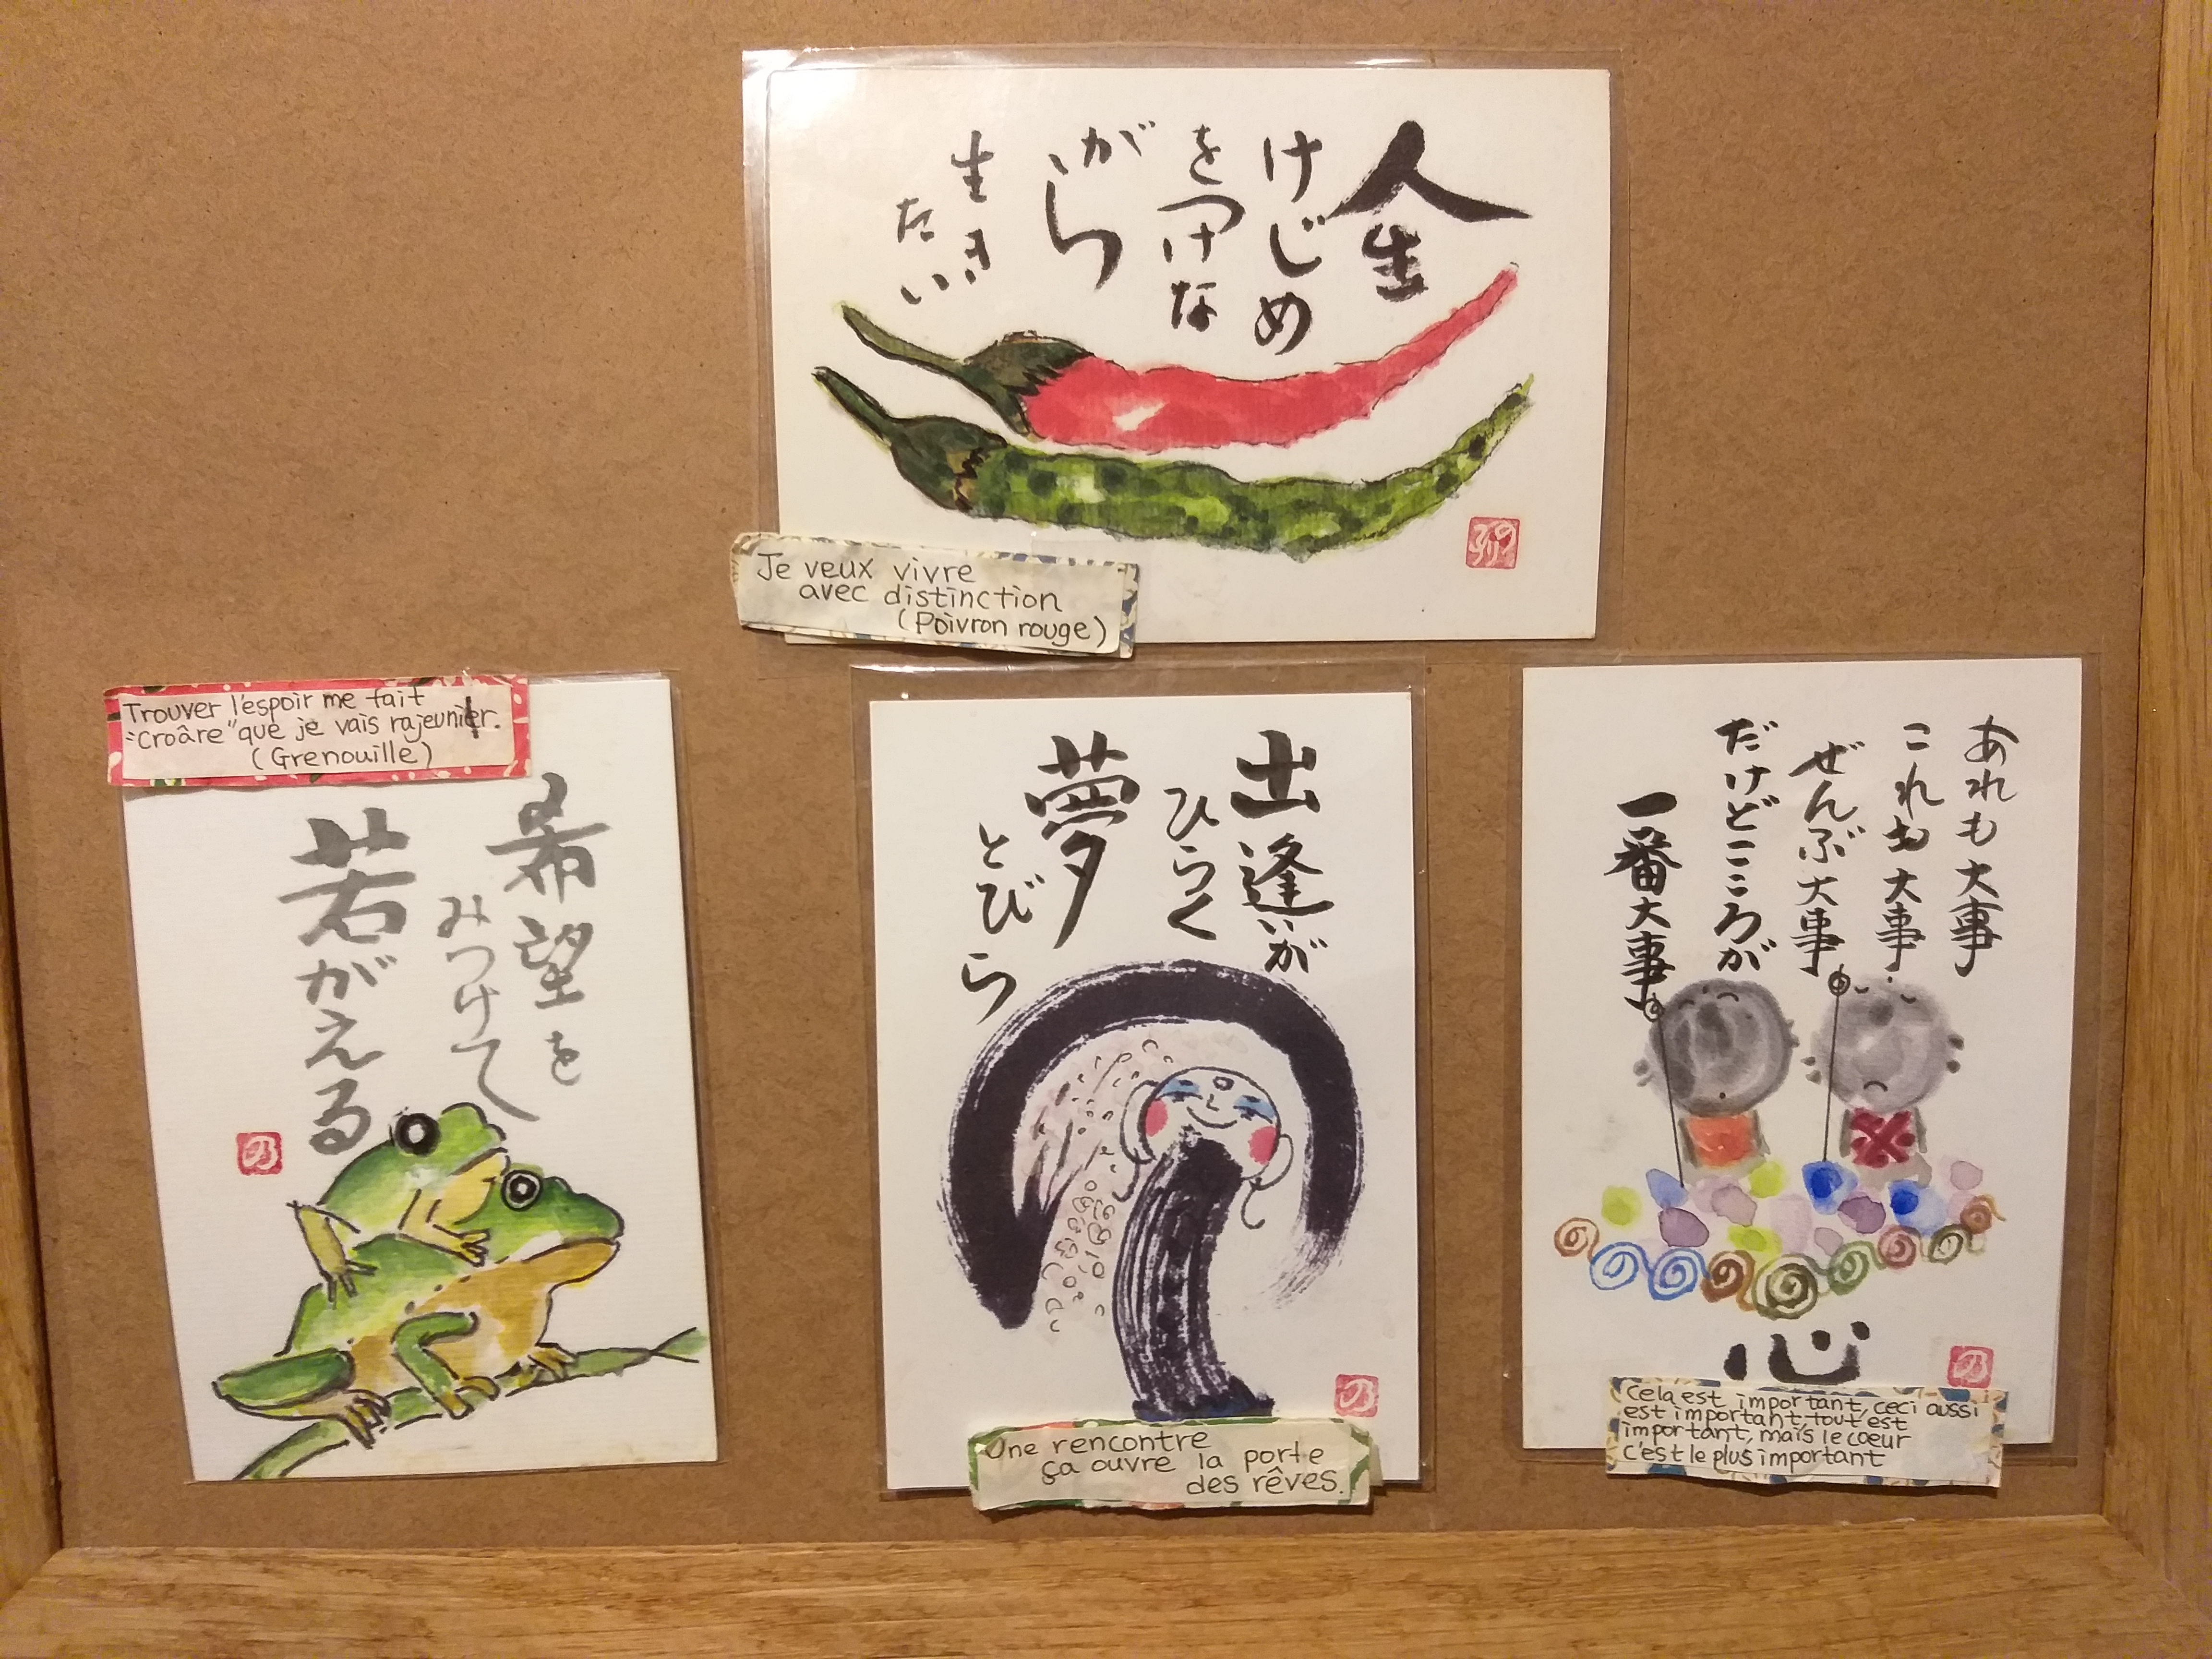 人生
けじめ
をつけな
がら
生き
たい
Je veux vivre
avec distinction
(Poivron rouge)
Trouver l'espoir me fait
"Croâre" que je vais rajeunir.
(Grenouille)
希望を
みつけて
若がえる
の
出逢いが
ひらく
夢
とびら
の
Une rencontre
ça ouvre la porte
des rêves.
あれも大事
これも大事
ぜんぶ大事
だけどこころが
一番大事
心
の
Cela est important, ceci aussi
est important, tout est
important, mais le coeur
c'est le plus important